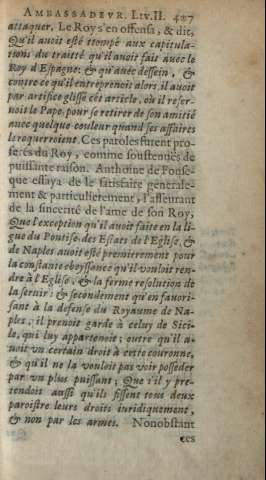 AMBASSADEVR. LIV.II. 427
attaquer. Le Roy s'en offensa, & dit,
Qu'il auoit esté trompé aux capitula-
tions du traitté qu'il auoit fait auec le
Roy d'Espagne: & qu'auec dessein, &
contre ce qu'il entreprenoit alors, il auoit
par artifice glissé cét article, où il reser-
uoit le Pape, pour se retirer de son amitié
auec quelque couleur quand ses affaires
le requerroient. Ces paroles furent pro-
ferées du Roy, comme soustenuës de
puissante raison. Anthoine de Fonse-
que essaya de le satisfaire generale-
ment & particulierement, l'asseurant
de la sincerité de l'ame de son Roy,
Que l'exception qu'il auoit faite en la li-
gue du Pontife des Estats de l'Eglise, &
de Naples auoit esté premierement pour
la constante obeyssance qu'il vouloit ren-
dre à l'Eglise, & la ferme resolution de
la seruir: & secondement qu'en fauori-
sant à la defense du Royaume de Na-
ples, il prenoit garde à celuy de Sici-
le, qui luy appartenoit; outre qu'il a-
uoit vn certain droit à cette couronne,
& qu'il ne la vouloit pas voir posseder
par vn plus puissant; Que s'il y pre-
tendoit aussi qu'ils fissent tous deux
paroistre leurs droits iuridiquement,
& non par les armes. Nonobstant
ces